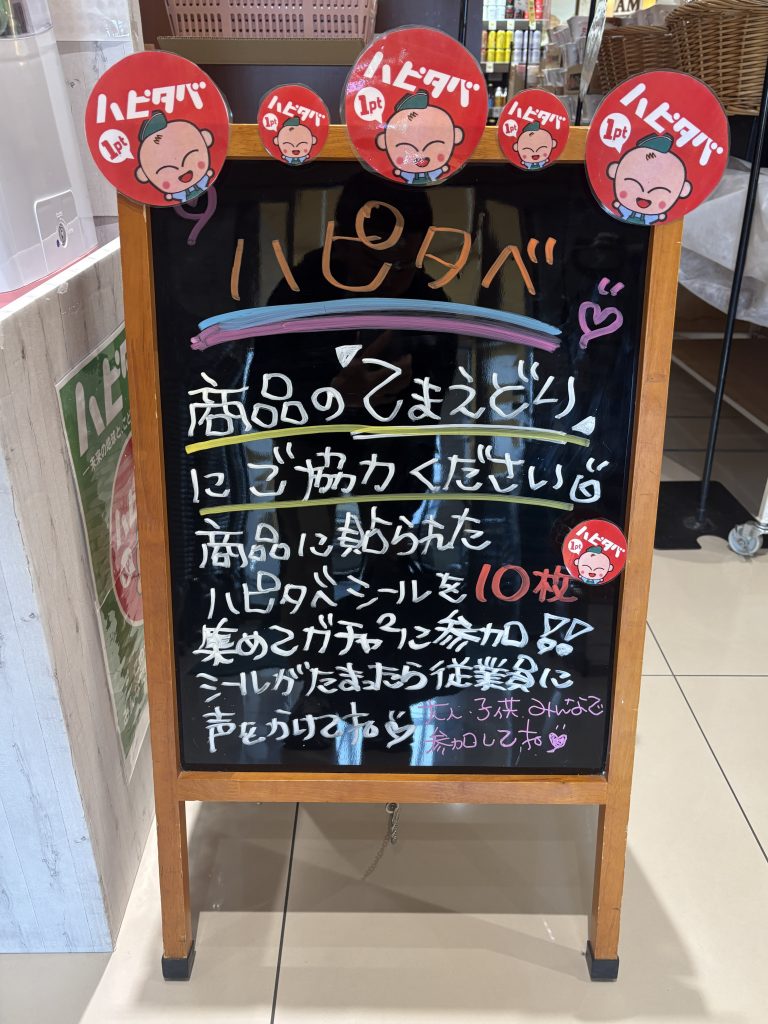 ハピタベ
1pt
ハピタベ
1pt
ハピタベ
1pt
ハピタベ
1pt
ハピタベ
1pt
ハピタベ
商品のてまえどり
にご協力ください
商品に貼られた
ハピタベシールを10枚
集めてガチャガチャに参加!!
シールがたまったら従業員に
声をかけてね
大人・子供 みんなで
参加してね
ハピタベ
1pt
ハピタ
AM